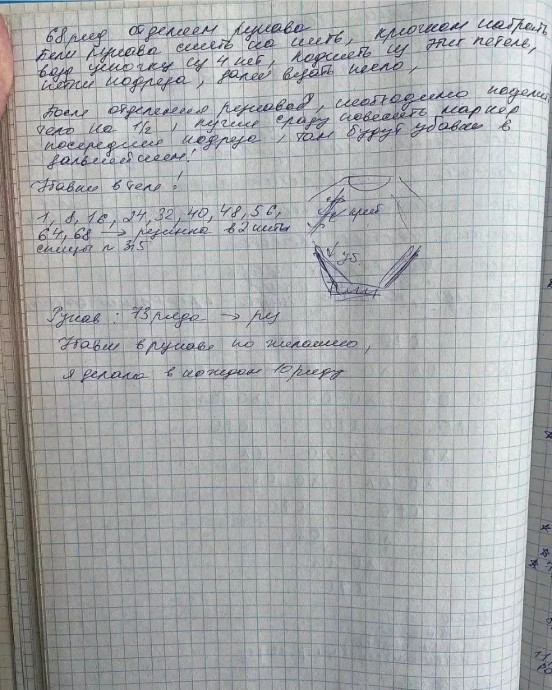 68 ряд отделяем рукава
Петли рукава снять на нить, крючком набрать
возд цепочку из 4 пет, поднять из этих петель,
петли подреза, далее вязать тело,
После отделения рукавов, необходимо поделить
тело на 1/2, лучше сразу повесить маркер
посередине подреза, там будут убавки в
дальнейшем!
Убавки в теле!
1, 8, 16, 24, 32, 40, 48, 56,
64, 68 → резинка в 2 нити
спицы № 3,5
приб
↓ уб.
Рукав: 73 ряда → рез
Убавки в рукаве по желанию,
я делала в каждом 10 ряду